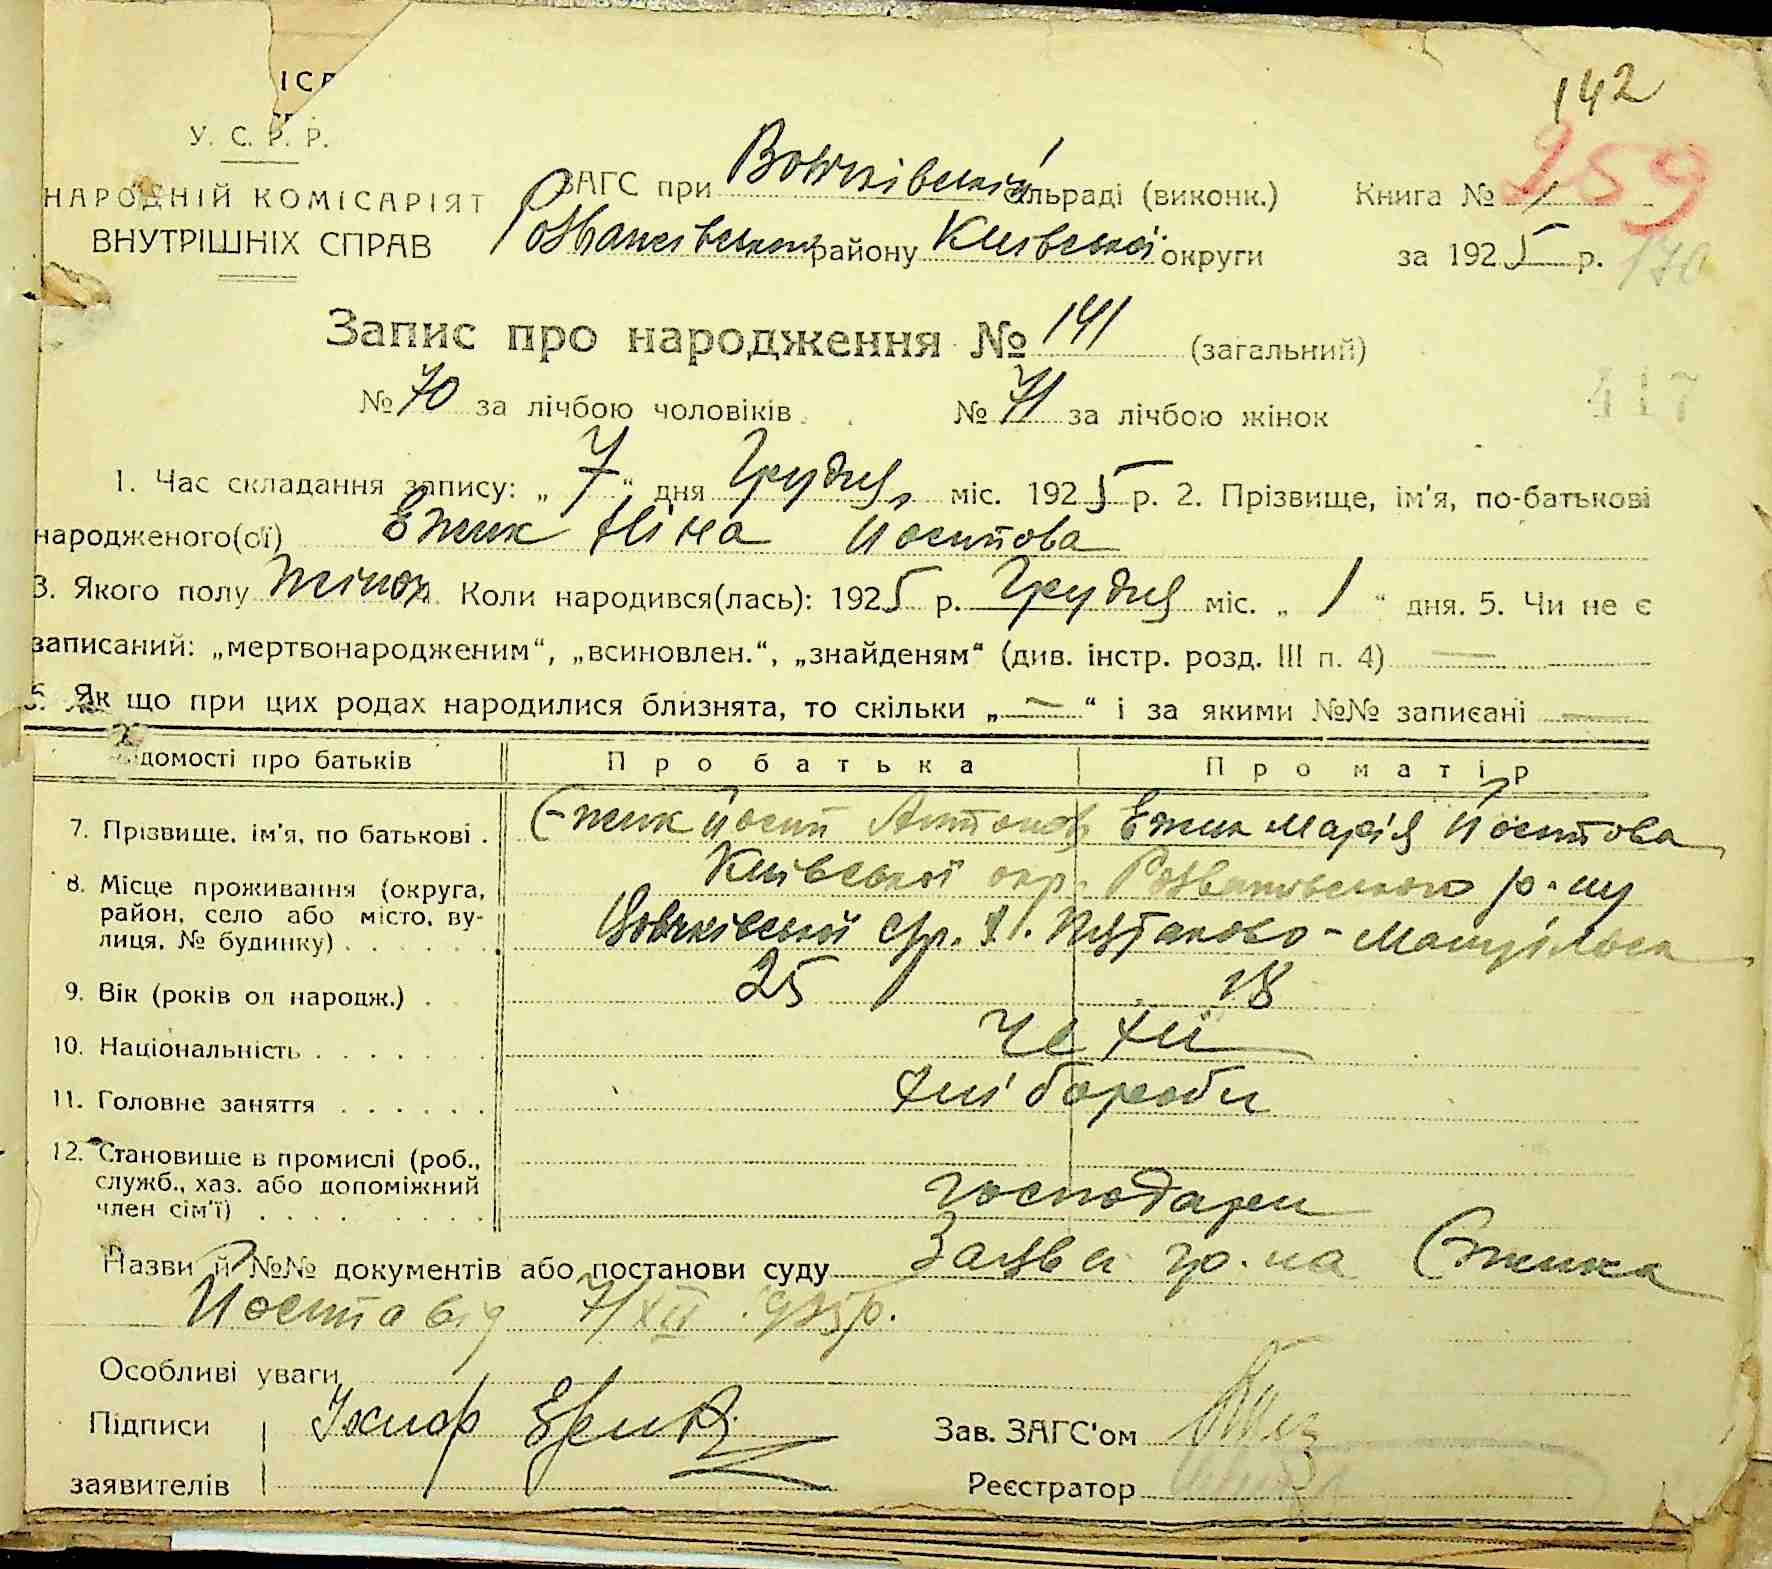 142
259
У. С. Р. Р.
НАРОДНІЙ КОМІСАРІЯТ
ВНУТРІШНІХ СПРАВ
ЗАГС при Вовчківській сільраді (виконк.) Книга № 1
Розважівського району Київської округи за 1925 р. 170
Запис про народження № 141 (загальний)
№ 70 за лічбою чоловіків. № 71 за лічбою жінок
417
1. Час складання запису: „7“ дня Грудня міс. 1925 р. 2. Прізвище, ім'я, по-батькові
народженого(ої) Ежик Ніна Йосипова
3. Якого полу жіноч. Коли народився(лась): 1925 р. Грудня міс. „1“ дня. 5. Чи не є
записаний: „мертвонародженим“, „всиновлен.“, „знайденям“ (див. інстр. розд. III п. 4) —
6. Як що при цих родах народилися близнята, то скільки „—“ і за якими №№ записані —
ідомості про батьків Про батька Про матір
7. Прізвище, ім'я, по батькові . Єжик Йосип Антонов Ежик Марія Йосипова
8. Місце проживання (округа, район, село або місто, вулиця, № будинку) . . . . . .
Київської окр. Розважівського р-ну
Вовчківської с/р.
9. Вік (років од народж.) . 25 18
10. Національність . . . . . . . Чехи
11. Головне заняття . . . . . . Хлібороби
12. Становище в промислі (роб.,
служб., хаз. або допоміжний
член сім'ї) . . . . . . . . . господари
Назви й №№ документів або постанови суду Заява гр-на Єжика
Йосипа від 7/XII 1925р.
Особливі уваги
Підписи Зав. ЗАГС'ом
заявителів Реєстратор